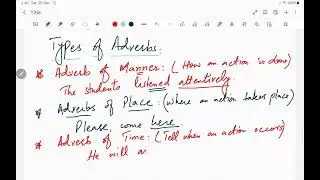 Title
Types of Adverbs:
* Adverb of Manner: (How an action is done)
The students listened attentively
* Adverbs of Place: (where an action takes place)
Please, come here.
* Adverb of Time: (Tell when an action occurs)
He will a